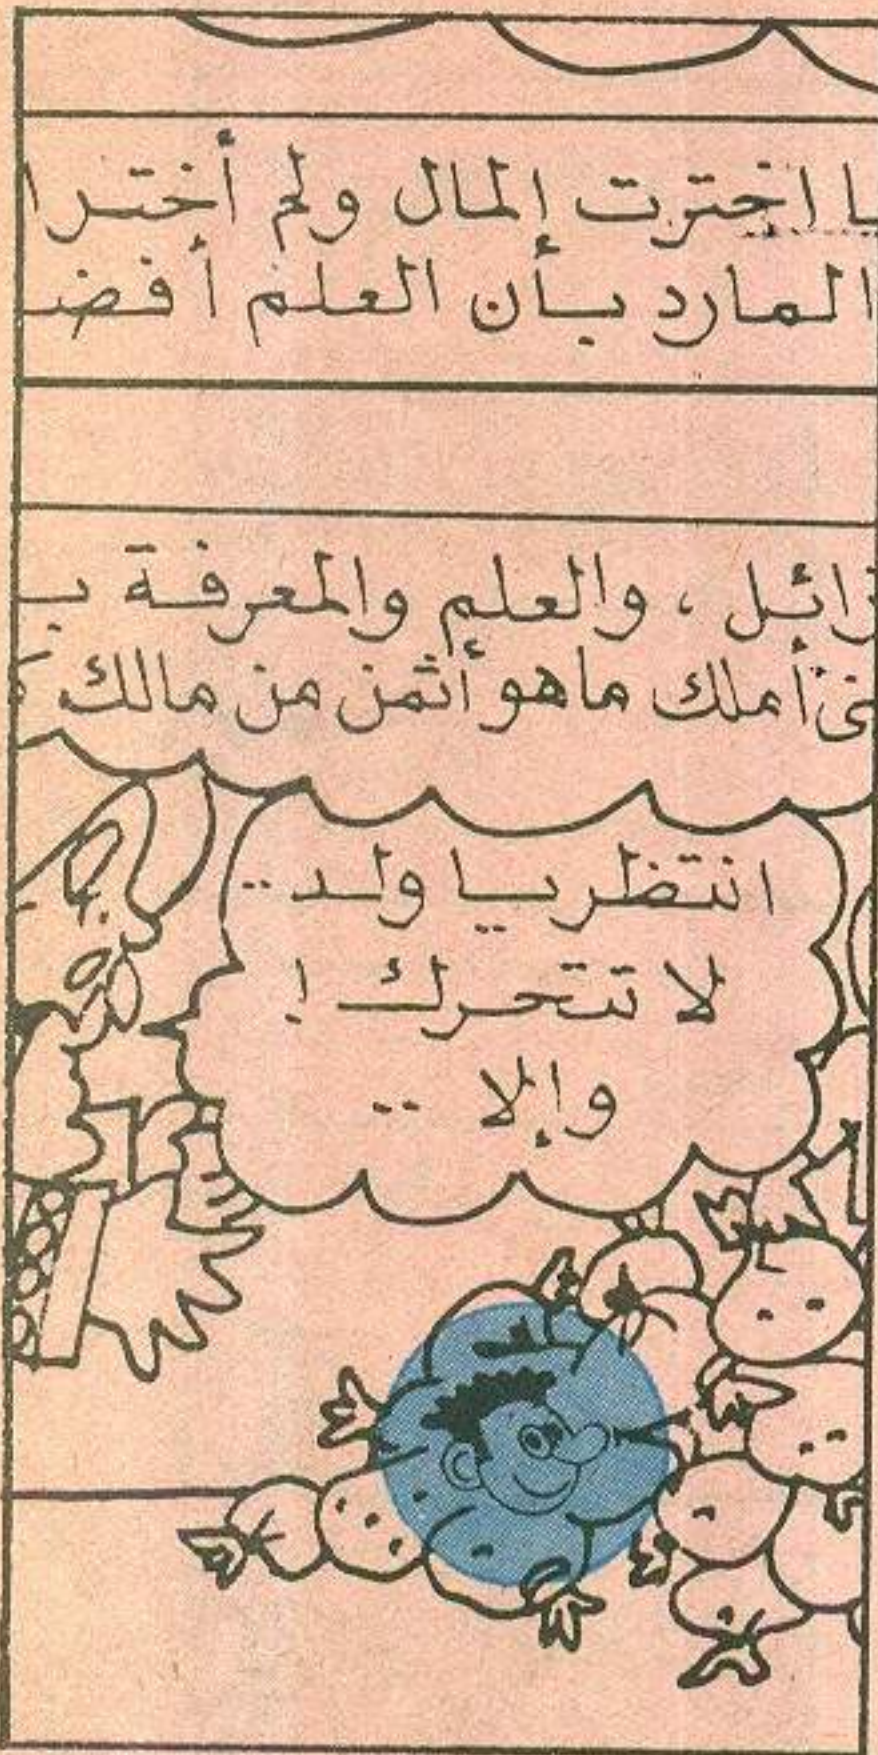 اخترت المال ولم أختر
المارد بأن العلم
زائل ، والعلم والمعرفة
أملك ما هو أثمن من مالك
انتظر يا ولد ..
لا تتحرك !
وإلا ..